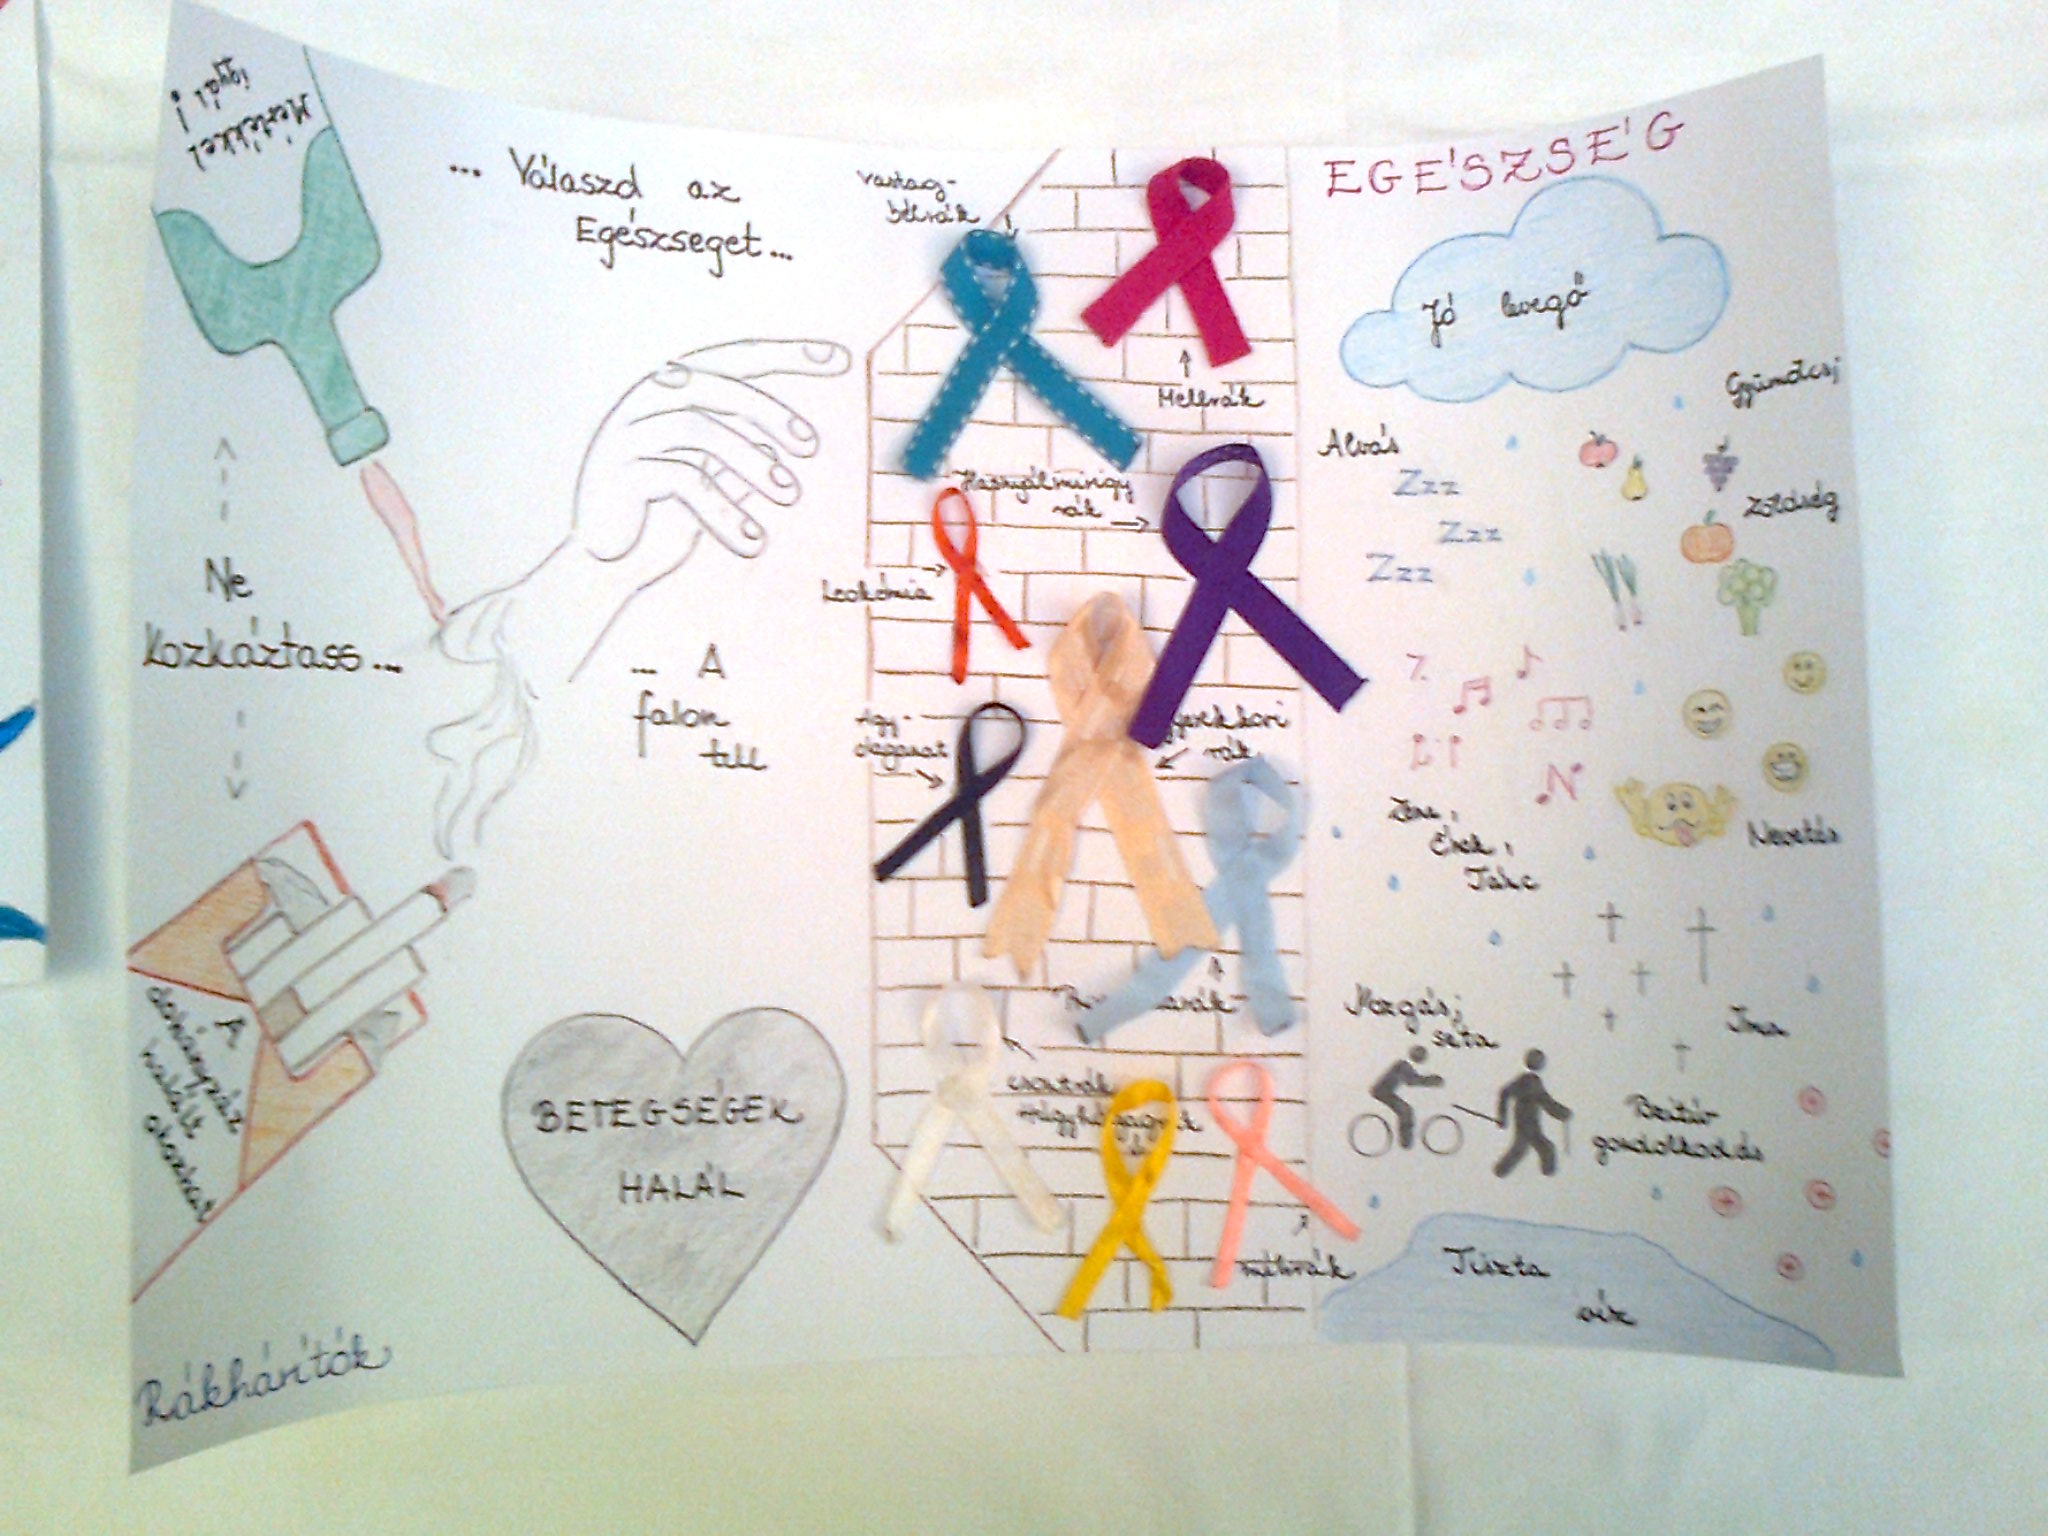 Mértékkel
igyál!
... Válaszd az
Egészséget...
Ne
Kozkáztass...
... A
falon
túl
A
dohányzás
halált
okozhat
BETEGSÉGEK
HALÁL
Rákhárítók
vastag-
bélrák
Mellrák
Hasnyálmirigy
rák
Leukémia
Agy-
daganat
rák
csontrák
méhrák
EGÉSZSÉG
Jó levegő
Gyümölcs;
zöldség
Alvás
Zzz
Zzz
Zzz
Zene,
Ének,
Tánc
Nevetés
Mozgás;
séta
Ima
Pozitív
gondolkodás
Tiszta
víz